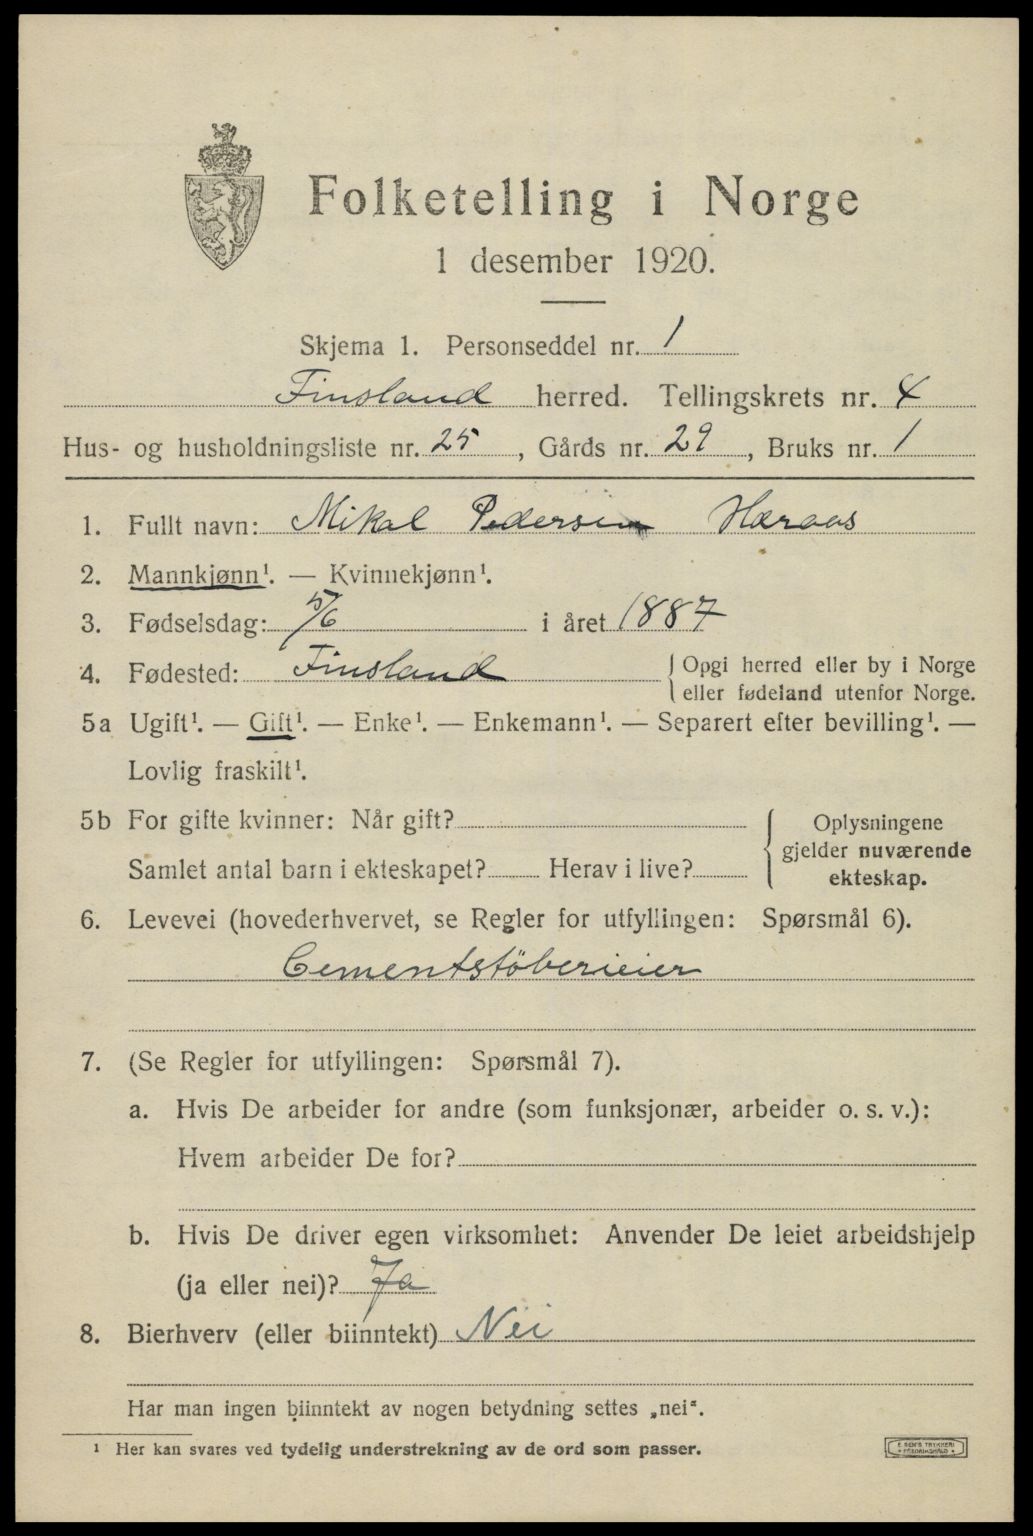 Folketelling i Norge
1 desember 1920.
Skjema 1. Personseddel nr. 1
Finsland herred. Tellingskrets nr. 4
Hus- og husholdningsliste nr. 25, Gårds nr. 29, Bruks nr. 1
1. Fullt navn: Mikal Pedersen Hæraas
2. Mannkjønn¹. — Kvinnekjønn¹.
3. Fødselsdag: 5/6 i året 1887
4. Fødested: Finsland { Opgi herred eller by i Norge
eller fødeland utenfor Norge.
5a Ugift¹. — Gift¹. — Enke¹. — Enkemann¹. — Separert efter bevilling¹. —
Lovlig fraskilt¹.
5b For gifte kvinner: Når gift?
Samlet antal barn i ekteskapet? Herav i live?
{ Oplysningene
gjelder nuværende
ekteskap.
6. Levevei (hovederhvervet, se Regler for utfyllingen: Spørsmål 6).
Cementstöberieier
7. (Se Regler for utfyllingen: Spørsmål 7).
a. Hvis De arbeider for andre (som funksjonær, arbeider o. s. v.):
Hvem arbeider De for?
b. Hvis De driver egen virksomhet: Anvender De leiet arbeidshjelp
(ja eller nei)? Ja
8. Bierhverv (eller biinntekt) Nei
Har man ingen biinntekt av nogen betydning settes „nei“.
¹ Her kan svares ved tydelig understrekning av de ord som passer.
E. SEM'S TRYKKERI
FREDRIKSHALD